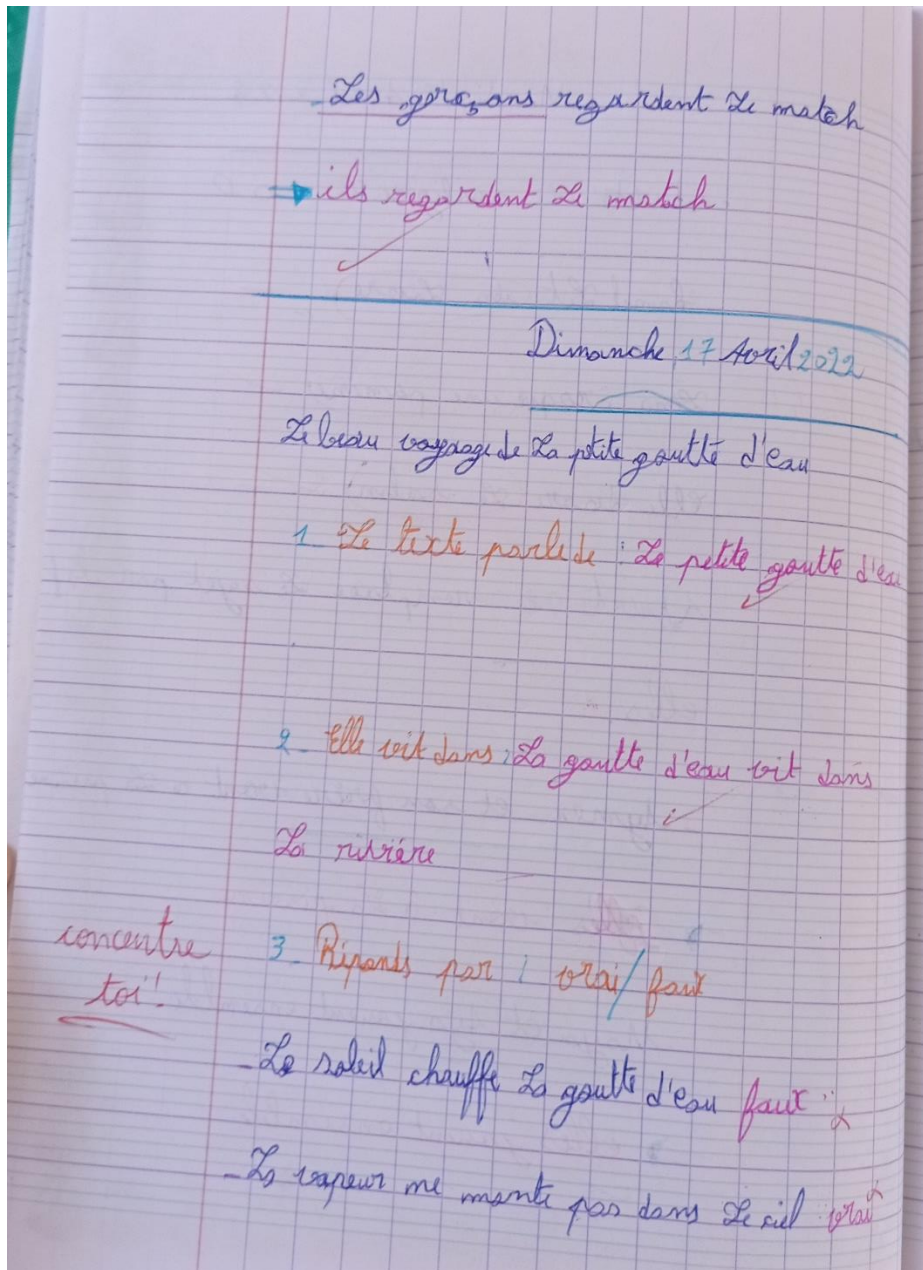 - Les garçons regardent Le match
→ ils regardent Le match
Dimanche 17 Avril 2022
Le beau voyage de La ptite goutte d'eau
1 Le texte parle de : Le petite goutte d'eau
2 - Elle vit dans : La goutte d'eau vit dans
La rivière
concentre 3 - Réponds par : vrai/faux
toi!
- Le soleil chauffe La goutte d'eau faux x
- La vapeur ne monte pas dans Le ciel vrai x